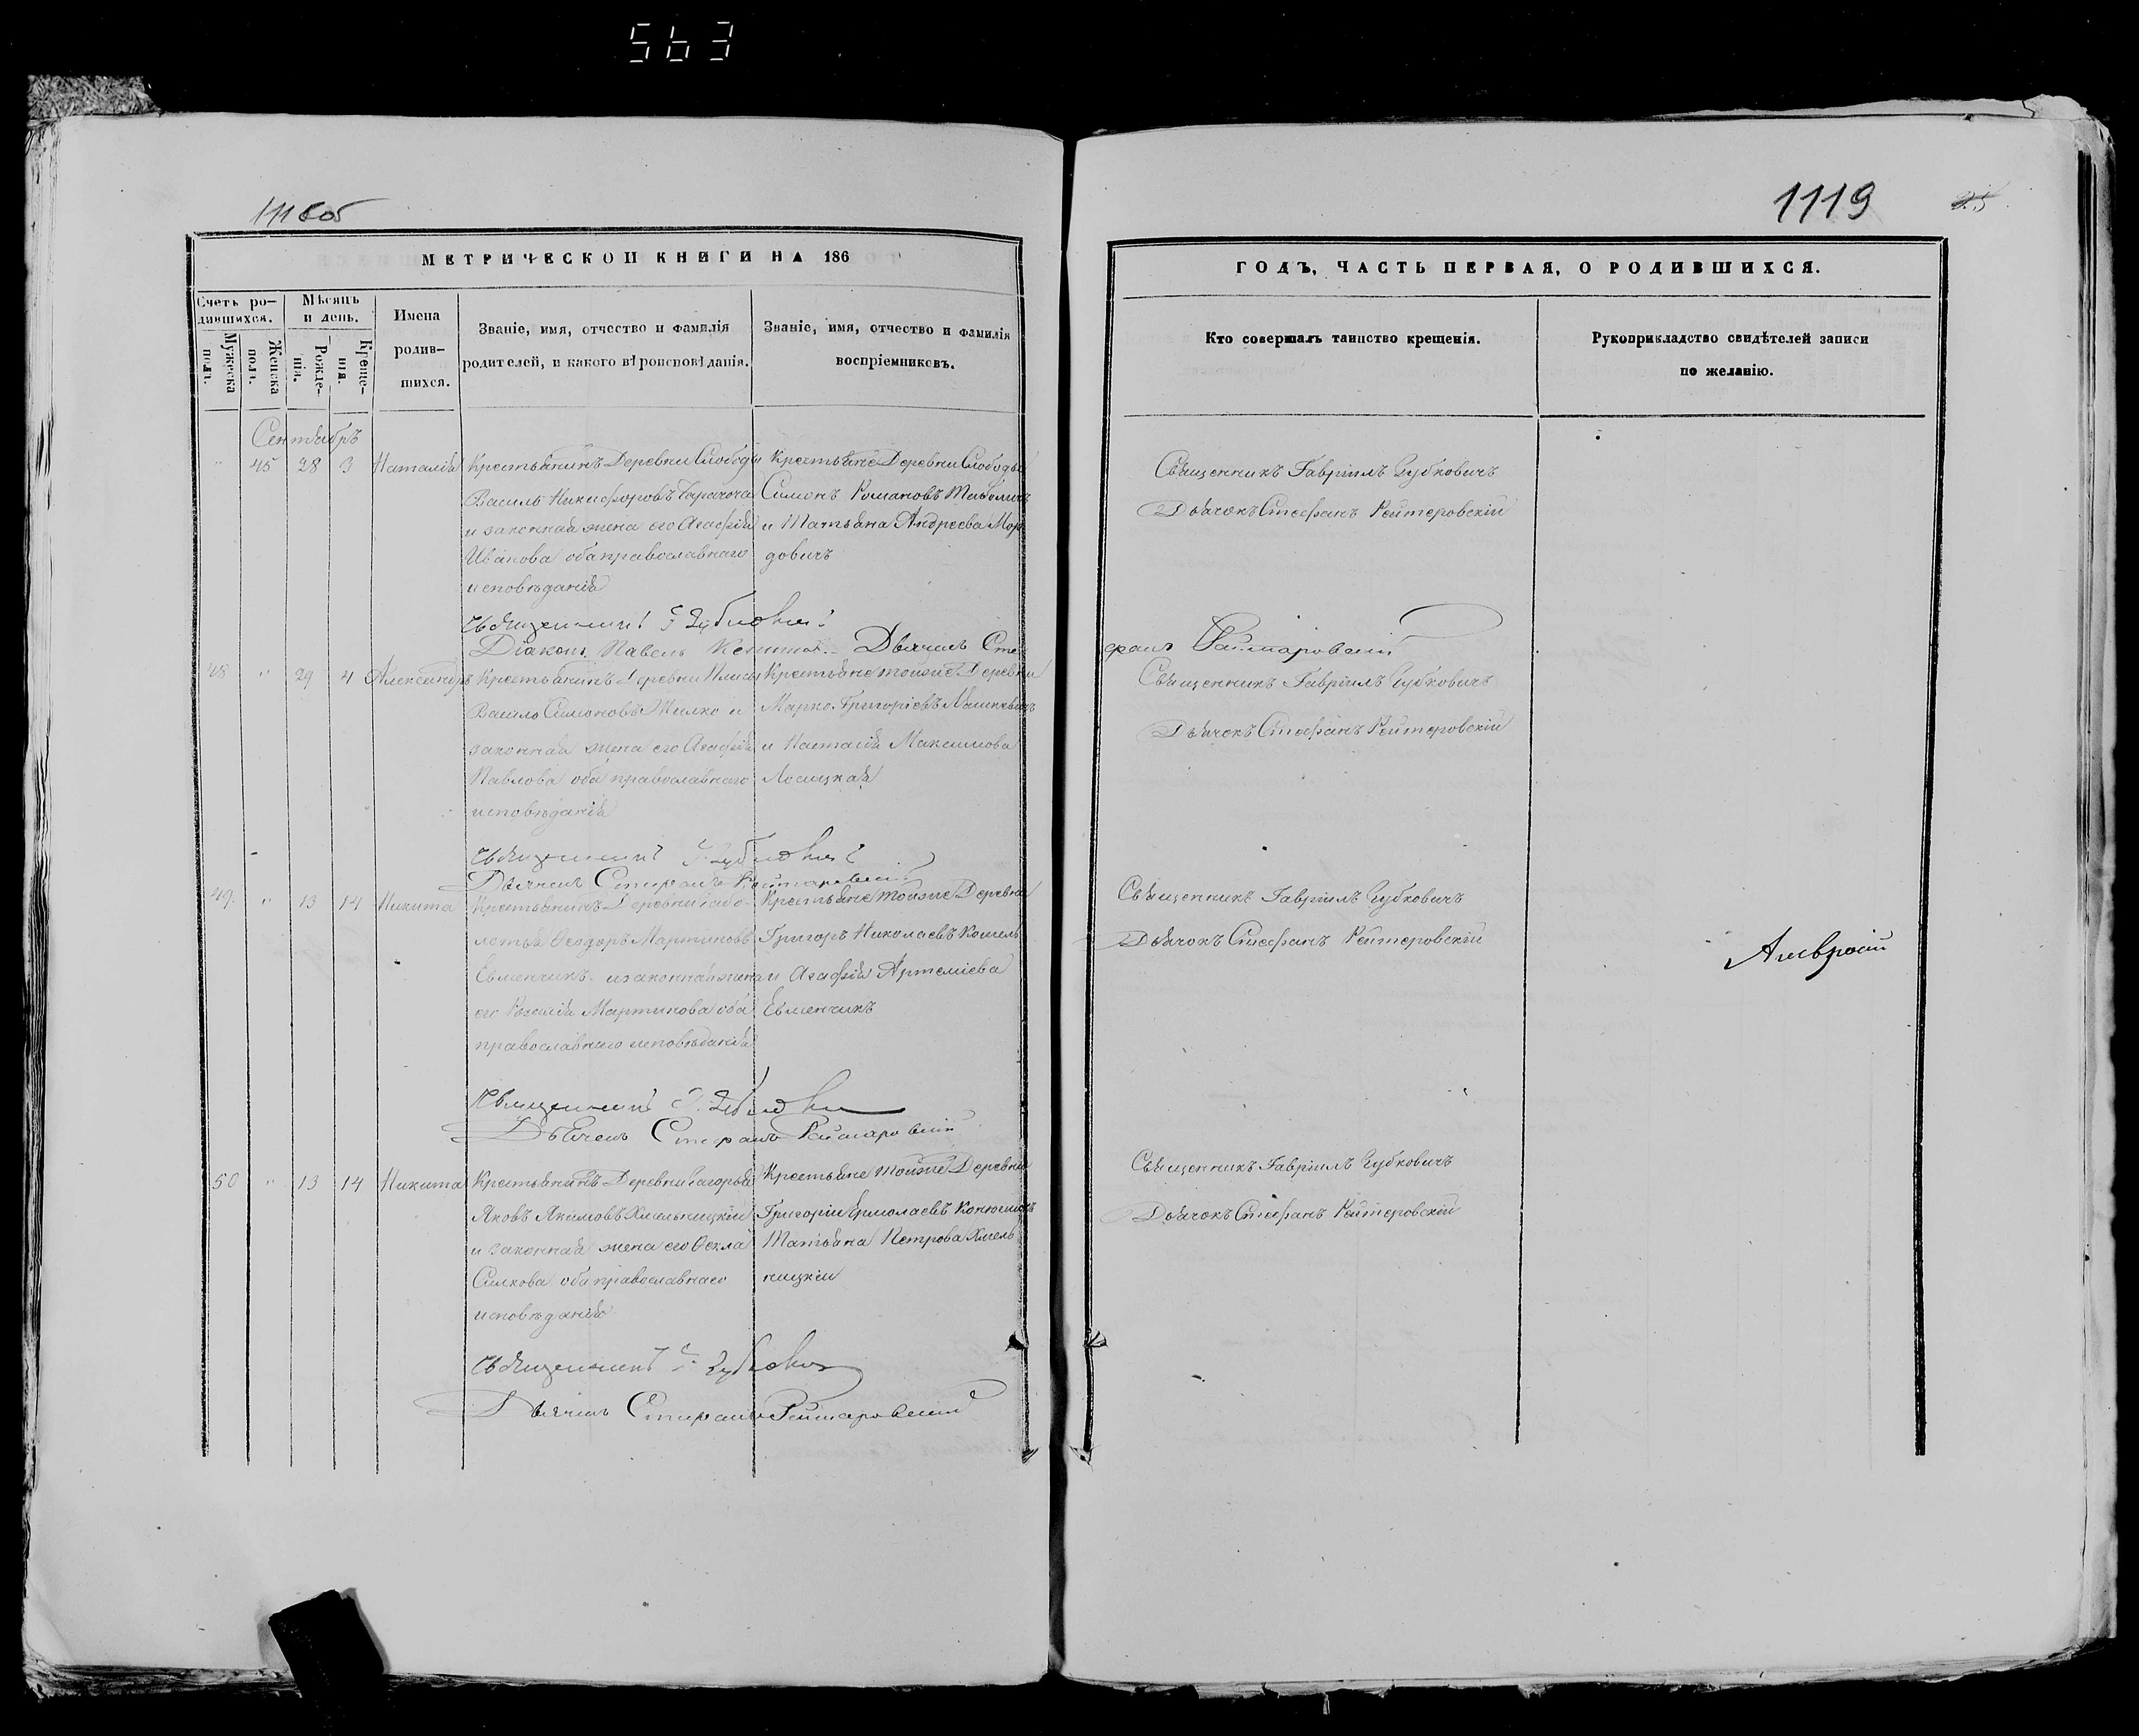 563
1118 об
МЕТРИЧЕСКОЙ КНИГИ НА 186
Счетъ ро-
дившихся.
Мужеска
полъ.
Женска
полъ.
Мѣсяцъ
и день.
Рожде-
нія.
Креще-
нія.
Имена
родив-
шихся.
Званіе, имя, отчество и фамилія
родителей, и какого вѣроисповѣданія.
Званіе, имя, отчество и фамилія
воспріемниковъ.
Сентябрь
" 45 28 3 Наталія
Крестьянинъ Деревни Слободы
Василь Никифоровъ
и законная жена его Агафія
Иванова оба православнаго
исповѣданія
Крестьяне Деревни Слободы
Симонъ Романовъ
и Татьяна Андреева Мор
довичъ
Священникъ Г Зубковичъ
Діаконъ Павелъ Дьячекъ Сте
48 " 29 4 Александръ
Крестьянинъ Деревни
Васило Симоновъ Жилко и
законная жена его Агафія
Павлова оба православнаго
исповѣданія
Крестьяне тойже Деревни
Марко Григоріевъ Машкевичъ
и Настасія Максимова
Лосицкая
Священникъ Г Зубковичъ
Дьячекъ Стефанъ Рейтаровскій
49 " 13 14 Никита
Крестьянинъ Деревни Забо-
лотья Ѳеодоръ Мартиновъ
Евменчикъ и законная жена
его Розалія Мартинова оба
православнаго исповѣданія
Крестьяне тойже Деревни
Григоръ Николаевъ Кошель
и Агафія Артеміева
Евменчикъ
Священникъ Г. Зубковичъ
Дьячекъ Стефанъ Рейтаровскій
50 " 13 14 Никита
Крестьянинъ Деревни Загорья
Яковъ Якимовъ Хмельницкій
и законная жена его Ѳекла
Силкова оба православнаго
исповѣданія
Крестьяне тойже Деревни
Григорій Ермолаевъ
Татьяна Петрова Хмель
ницкій
Священникъ Г. Зубковичъ
Дьячекъ Стефанъ Рейтаровскій
1119 25
ГОДЪ, ЧАСТЬ ПЕРВАЯ, О РОДИВШИХСЯ.
Кто совершалъ таинство крещенія.
Рукоприкладство свидѣтелей записи
по желанію.
Священникъ Гавріилъ Зубковичъ
Дьячокъ Стефанъ Рейтеровскій
фанъ Рейтаровскій
Священникъ Гавріилъ Зубковичъ
Дьячокъ Стефанъ Рейтеровскій
Священникъ Гавріилъ Зубковичъ
Дьячокъ Стефанъ Рейтеровскій
Священникъ Гавріилъ Зубковичъ
Дьячокъ Стефанъ Рейтеровскій